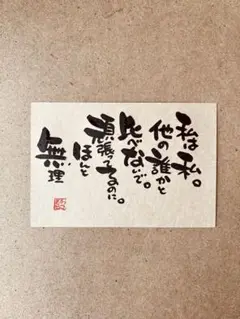 私は私。
他の誰かと
比べないで。
頑張ってるのに。
ほんと
無理